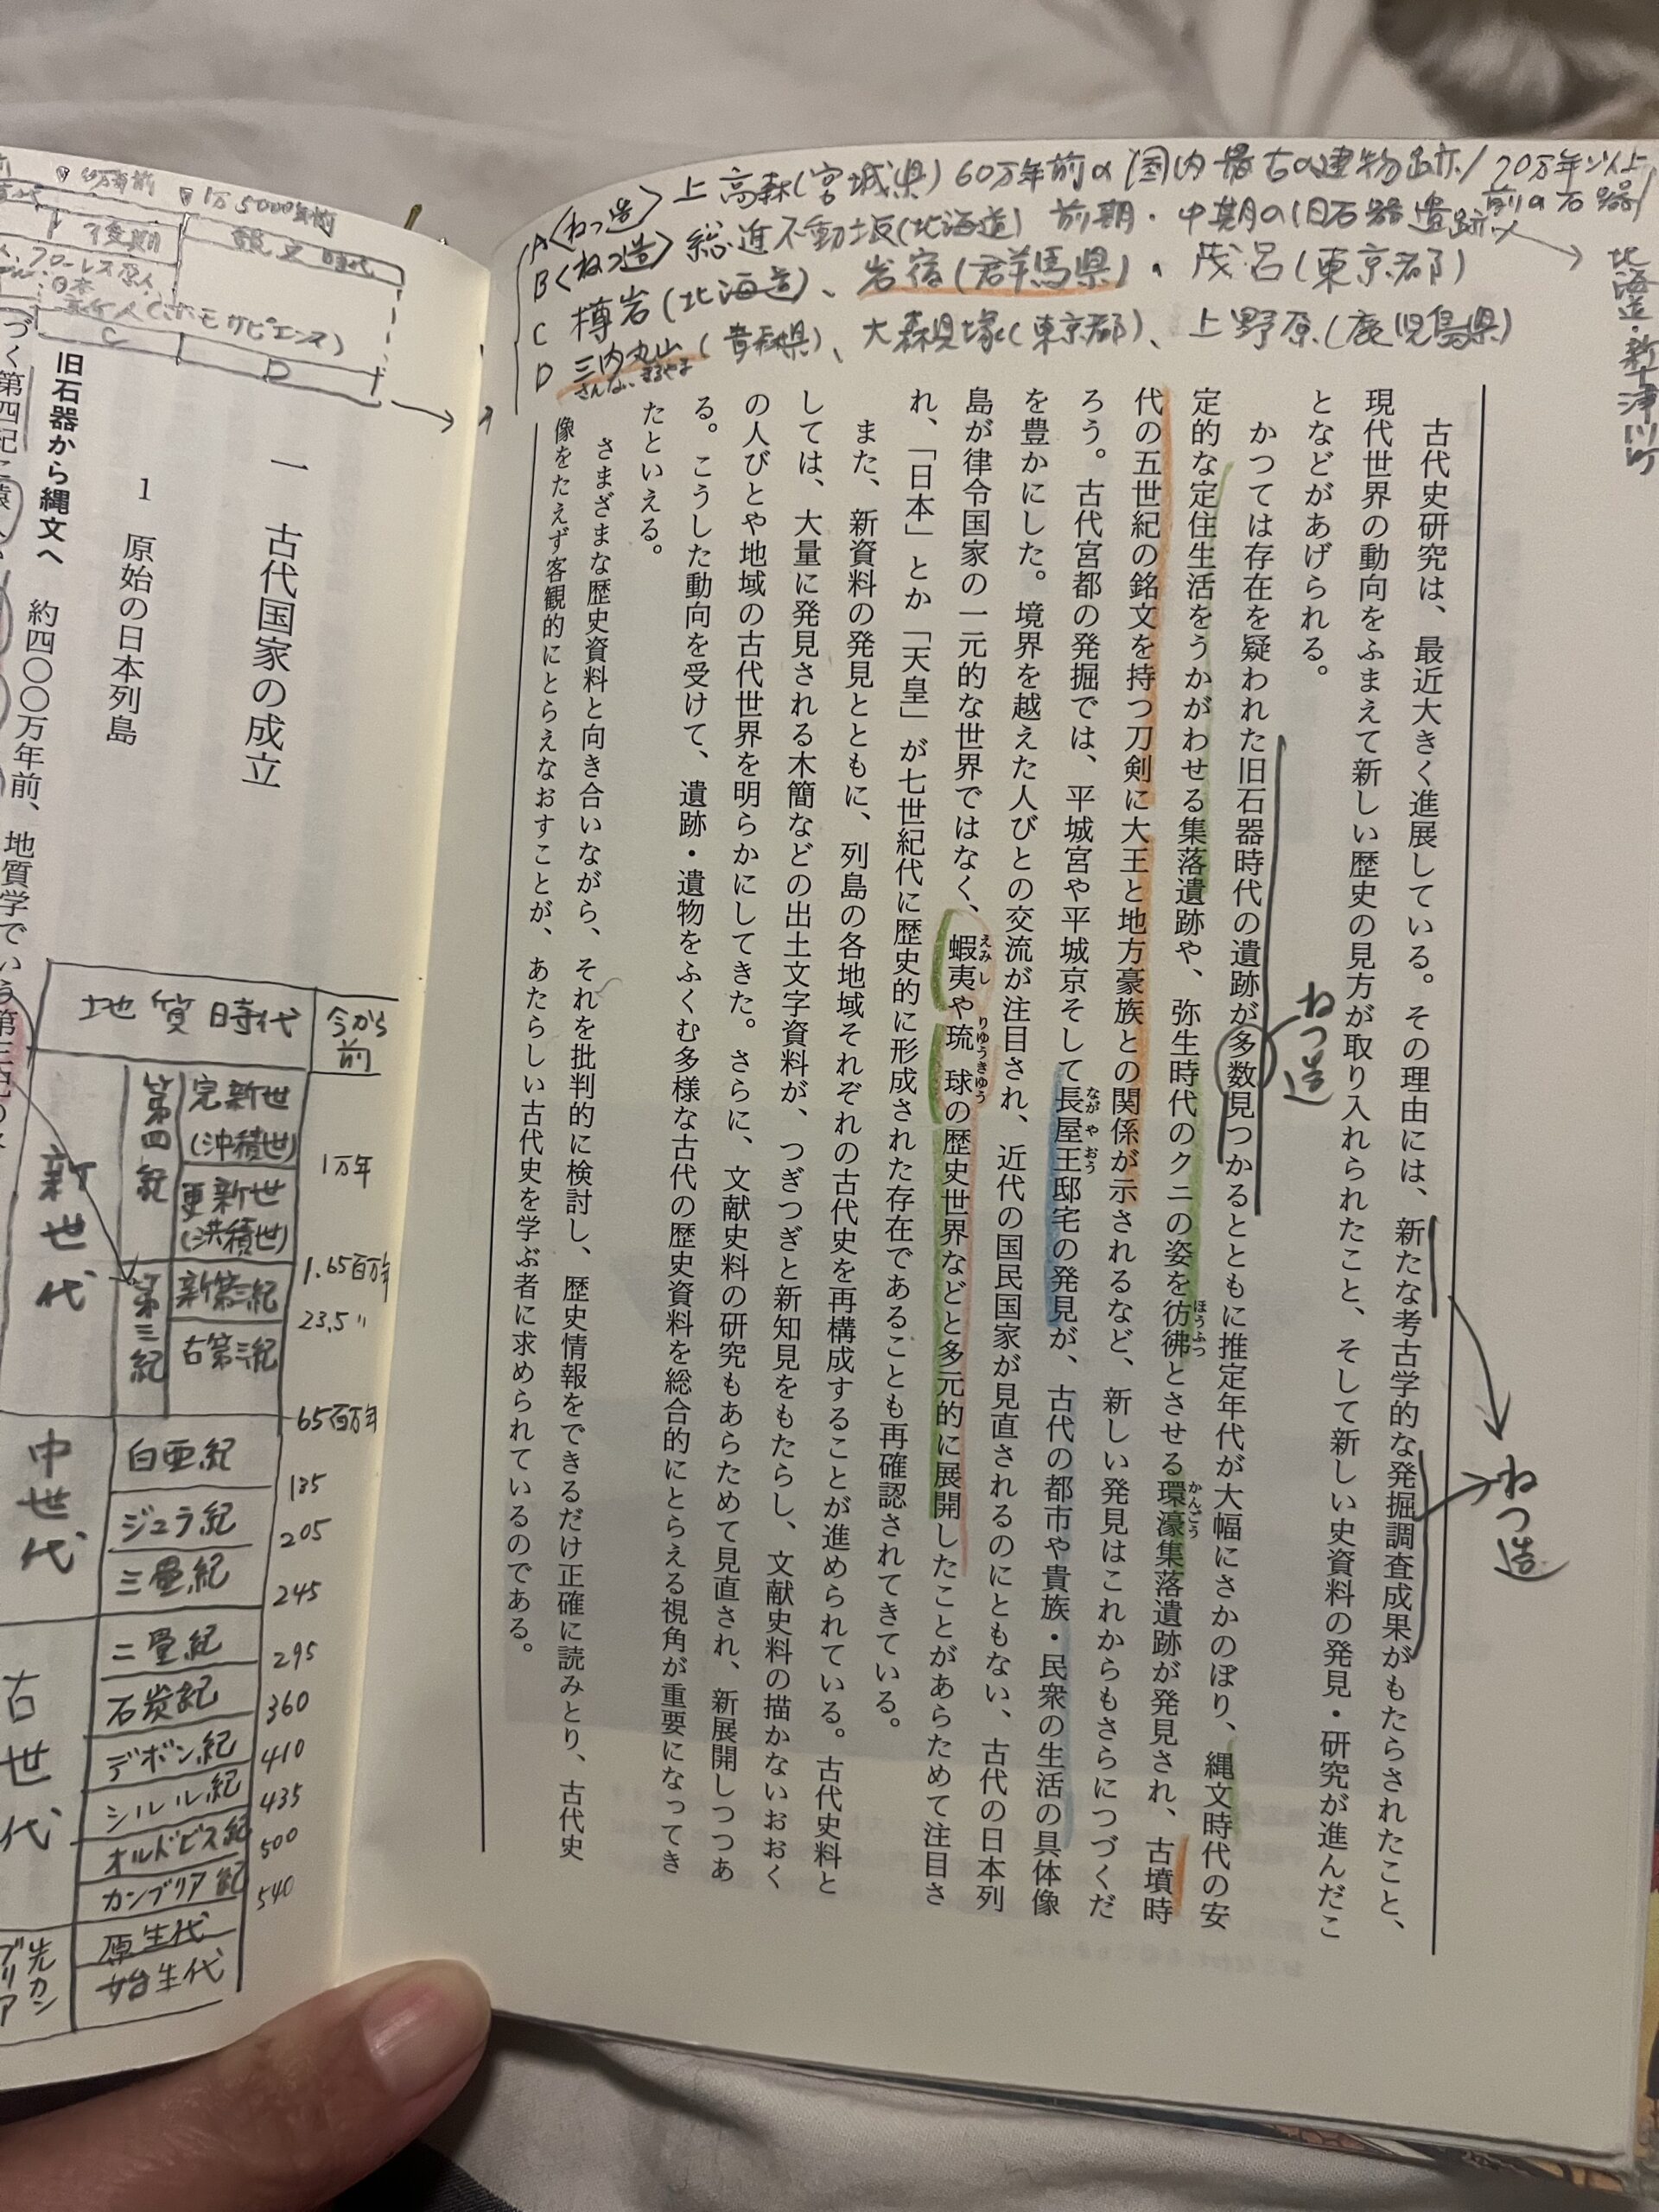 A〈ねつ造〉上高森(宮城県) 60万年前の国内最古の建物跡/70万年以上前の石器/
B〈ねつ造〉総進不動坂(北海道) 前期・中期の旧石器遺跡
北海道・新十津川町
C 樽岩(北海道)、岩宿(群馬県)・茂呂(東京都)
D 三内丸山(青森県)、大森貝塚(東京都)、上野原(鹿児島県)
さんないまるやま
古代史研究は、最近大きく進展している。その理由には、新たな考古学的な発掘調査成果がもたらされたこと、
現代世界の動向をふまえて新しい歴史の見方が取り入れられたこと、そして新しい史資料の発見・研究が進んだこ
となどがあげられる。
かつては存在を疑われた旧石器時代の遺跡が多数見つかるとともに推定年代が大幅にさかのぼり、縄文時代の安
定的な定住生活をうかがわせる集落遺跡や、弥生時代のクニの姿を彷彿とさせる環濠集落遺跡が発見され、古墳時
代の五世紀の銘文を持つ刀剣に大王と地方豪族との関係が示されるなど、新しい発見はこれからもさらにつづくだ
ろう。古代宮都の発掘では、平城宮や平城京そして長屋王邸宅の発見が、古代の都市や貴族・民衆の生活の具体像
を豊かにした。境界を越えた人びとの交流が注目され、近代の国民国家が見直されるのにともない、古代の日本列
島が律令国家の一元的な世界ではなく、蝦夷や琉球の歴史世界などと多元的に展開したことがあらためて注目さ
れ、「日本」とか「天皇」が七世紀代に歴史的に形成された存在であることも再確認されてきている。
また、新資料の発見とともに、列島の各地域それぞれの古代史を再構成することが進められている。古代史料と
しては、大量に発見される木簡などの出土文字資料が、つぎつぎと新知見をもたらし、文献史料の描かないおおく
の人びとや地域の古代世界を明らかにしてきた。さらに、文献史料の研究もあらためて見直され、新展開しつつあ
る。こうした動向を受けて、遺跡・遺物をふくむ多様な古代の歴史資料を総合的にとらえる視角が重要になってき
たといえる。
さまざまな歴史資料と向き合いながら、それを批判的に検討し、歴史情報をできるだけ正確に読みとり、古代史
像をたえず客観的にとらえなおすことが、あたらしい古代史を学ぶ者に求められているのである。
ほうふつ
かんごう
ながやおう
えみし
りゆうきゆう
ねつ造
ねつ造
一 古代国家の成立
1 原始の日本列島
旧石器から縄文へ 約四〇〇万年前、地質学でいう第三紀の
づく第四紀
1万5000年前
後期
縄文時代
フローレス原人
日本
新人(ホモサピエンス)
C
D
地質時代 今から前
新世代
第四紀 完新世(沖積世)
1万年
更新世(洪積世)
1.65百万年
第三紀 新第三紀
23.5〃
古第三紀
65百万年
中世代
白亜紀
135
ジュラ紀
205
三畳紀
245
古世代
二畳紀
295
石炭紀
360
デボン紀
410
シルル紀
435
オルドビス紀
500
カンブリア紀
540
先カンブリア
原生代
始生代